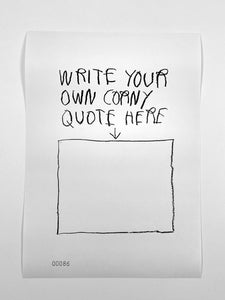 WRITE YOUR
OWN CORNY
QUOTE HERE
00086